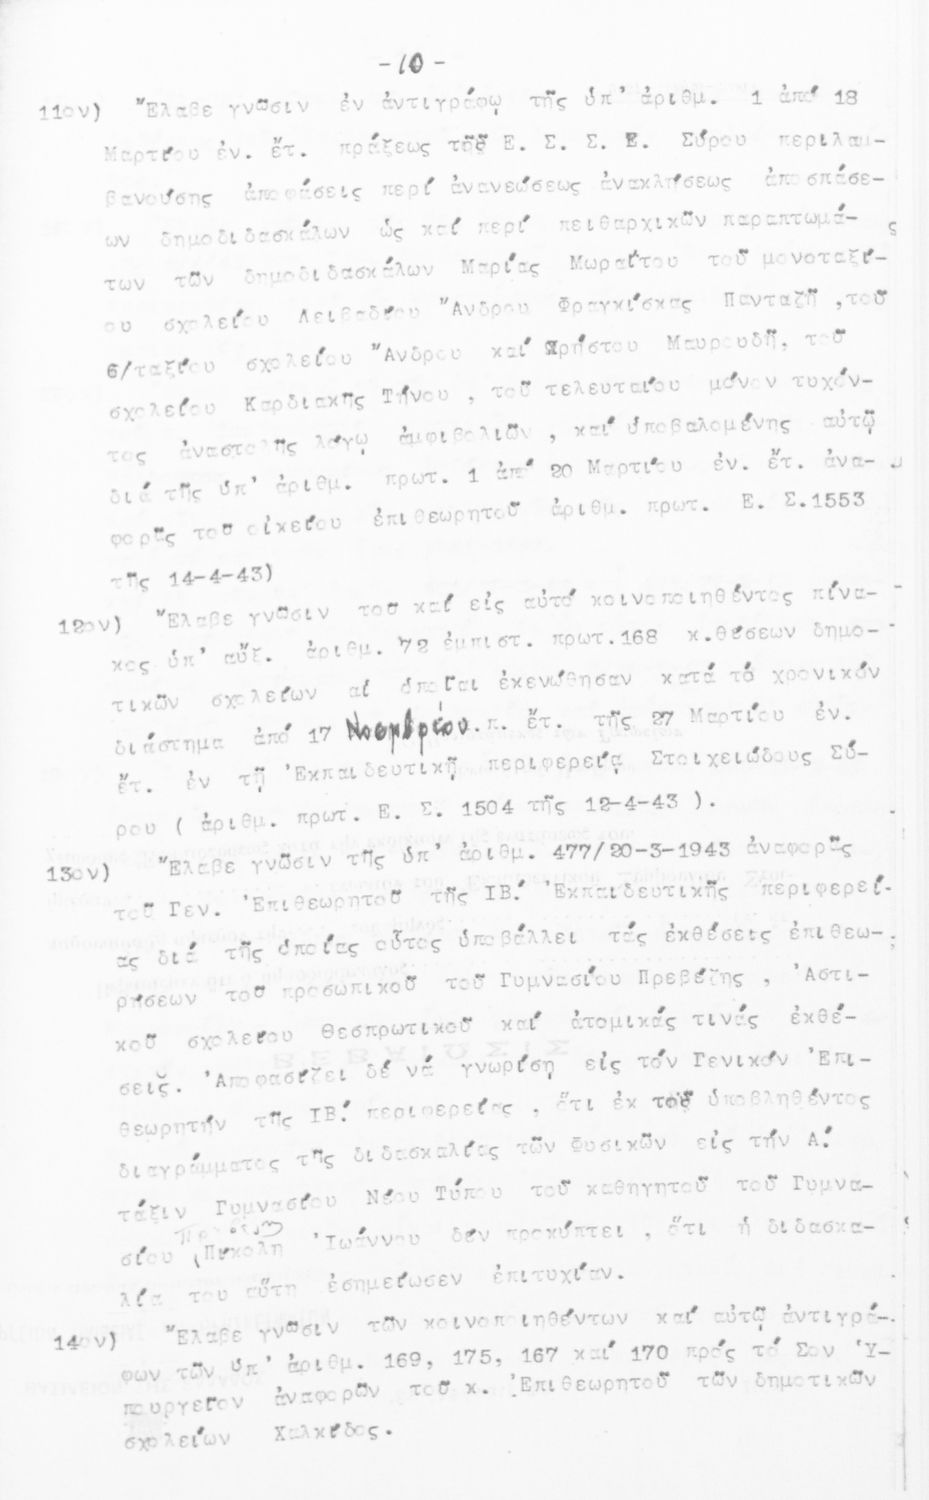 -10-
11ον) Ἔλαβε γνῶσιν ἐν ἀντιγράφῳ τῆς ὑπ' ἀριθμ. 1 ἀπό 18
Μαρτίου ἐν. ἔτ. πράξεως τῆς Ε. Σ. Σ. Ε. Σύρου περιλαμ-
βανούσης ἀποφάσεις περί ἀνανεώσεως ἀνακλήσεως ἀποσπάσε-
ων δημοδιδασκάλων ὡς καί περί πειθαρχικῶν παραπτωμά- ς
των τῶν δημοδιδασκάλων Μαρίας Μωραΐτου τοῦ μονοταξί-
ου σχολείου Λειβαδίου Ἄνδρου Φραγκίσκας Πανταζῆ ,τοῦ
6/ταξίου σχολείου Ἄνδρου καί Χρήστου Μαυρουδῆ, τοῦ
σχολείου Καρδιακῆς Τήνου , τοῦ τελευταίου μόνον τυχόν-
τος ἀναστολῆς λόγῳ ἀμφιβολιῶν , καί ὑποβαλομένης αὐτῷ
διά τῆς ὑπ' ἀριθμ. πρωτ. 1 ἀπό 20 Μαρτίου ἐν. ἔτ. ἀνα-
φορᾶς τοῦ οἰκείου ἐπιθεωρητοῦ ἀριθμ. πρωτ. Ε. Σ.1553
τῆς 14-4-43)
12ον) Ἔλαβε γνῶσιν τοῦ καί εἰς αὐτό κοινοποιηθέντος πίνα-
κος ὑπ' αὔξ. ἀριθμ. 72 ἐμπιστ. πρωτ.168 κ.θέσεων δημο-
τικῶν σχολείων αἱ ὁποῖαι ἐκενώθησαν κατά τό χρονικόν
διάστημα ἀπό 17 Νοεμβρίου.π. ἔτ. τῆς 27 Μαρτίου ἐν.
ἔτ. ἐν τῇ Ἐκπαιδευτικῇ περιφερείᾳ Στοιχειώδους Σύ-
ρου ( ἀριθμ. πρωτ. Ε. Σ. 1504 τῆς 12-4-43 ).
13ον) Ἔλαβε γνῶσιν τῆς ὑπ' ἀριθμ. 477/20-3-1943 ἀναφορᾶς
τοῦ Γεν. Ἐπιθεωρητοῦ τῆς ΙΒ΄. Ἐκπαιδευτικῆς περιφερεί-
ας διά τῆς ὁποίας οὗτος ὑποβάλλει τάς ἐκθέσεις ἐπιθεω-
ρήσεων τοῦ προσωπικοῦ τοῦ Γυμνασίου Πρεβέζης , Ἀστι-
κοῦ σχολείου Θεσπρωτικοῦ καί ἀτομικάς τινάς ἐκθέ-
σεις. Ἀποφασίζει δέ νά γνωρίσῃ εἰς τόν Γενικόν Ἐπι-
θεωρητήν τῆς ΙΒ΄. περιφερείας , ὅτι ἐκ τοῦ ὑποβληθέντος
διαγράμματος τῆς διδασκαλίας τῶν Φυσικῶν εἰς τήν Α΄.
τάξιν Γυμνασίου Νέου Τύπου τοῦ καθηγητοῦ τοῦ Γυμνα-
σίου Πικολη Ἰωάννου δέν προκύπτει , ὅτι ἡ διδασκα-
λία του αὕτη ἐσημείωσεν ἐπιτυχίαν.
14ον) Ἔλαβε γνῶσιν τῶν κοινοποιηθέντων καί αὐτῷ ἀντιγρά-
φων τῶν ὑπ' ἀριθμ. 169, 175, 167 καί 170 πρός τό Σον Ὑ-
πουργεῖον ἀναφορῶν τοῦ κ. Ἐπιθεωρητοῦ τῶν δημοτικῶν
σχολείων Χαλκίδος.